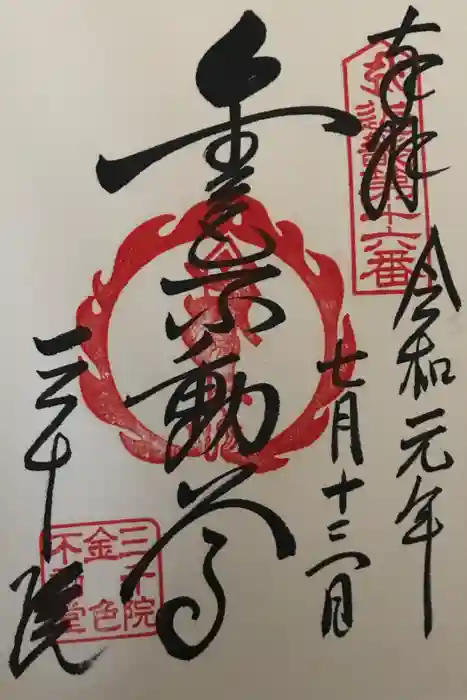 奉拝
令和元年
七月十三日
金色不動尊
三千院
三千院
金色
不動堂